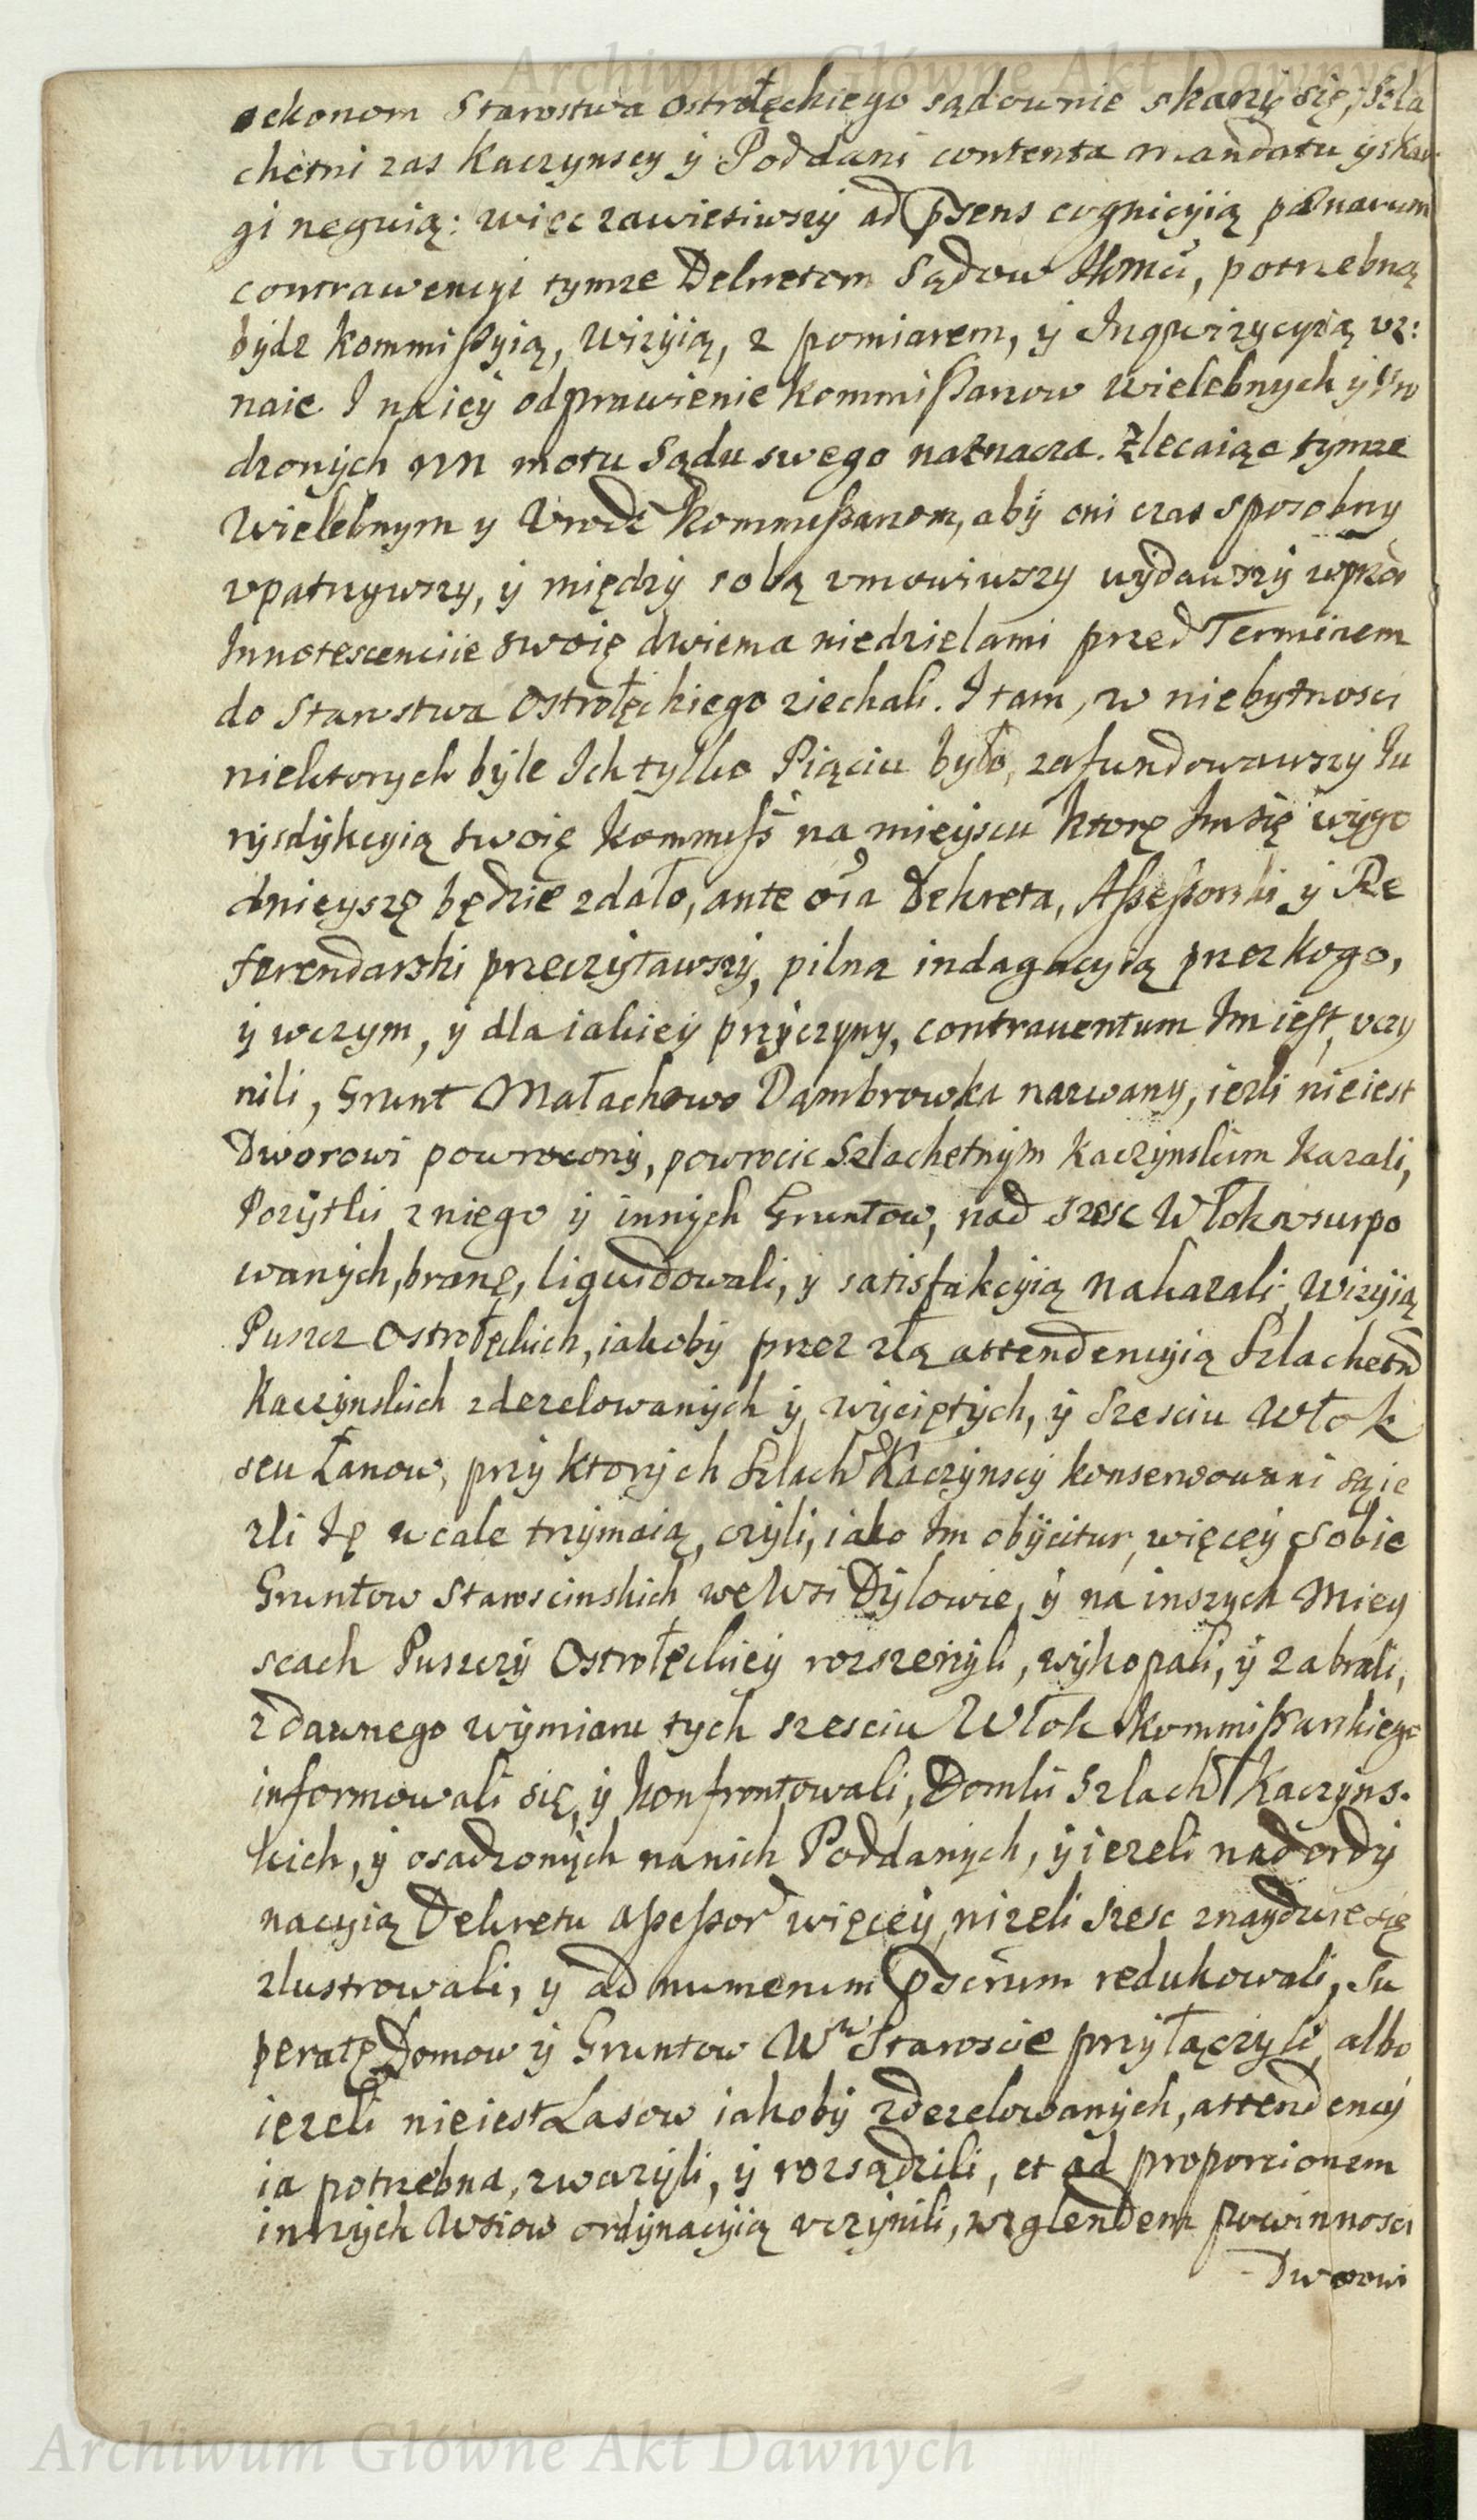 Archiwum Główne Akt Dawnych
oekonom Starostwa Ostrołęckiego sądownie skarzy się, Szla
chetni zas Kaczynscy ÿ Poddani contenta mandatu ÿ skar
gi neguią: więc zawiesiwszy ad psens cognicyią pænarum
contrawencyi tymze Dekretom Sądow JKMci, potrzebną
bydz kommißyią, wizyią, z pomiarem, ÿ Inqwizycyią vz:
naie I na ieÿ odprawienie kommißarzow wielebnych ÿ Vro
dzonÿch NN motu Sądu swego naznacza. Zlecaiąc tymze
Wielebnym y Vrodz Kommißarzom, abÿ oni czas sposobny
vpatrzywszy, ÿ międzÿ sobą vmowiwszy wÿdawszÿ wprzod
Innotescencÿie swoię dwiema niedzielami przed Terminem
do Starostwa Ostrołęckiego ziechali. I tam, w niebytnosci
niektorych bÿle Ich tylko Piąciu było, zafundowawszÿ Iu
rÿsdÿkcyią swoię kommiß na mieÿscu ktorę Im się wÿgo
dnieyszę będzie zdało, ante oĩa Dekreta, Aßeßorski ÿ Re
ferendarski przeczÿtawszÿ, pilną indagacyią przez kogo,
ÿ wczym, ÿ dla iakieÿ przÿczyny, contrauentum Im iest, vczy
nili, Grunt Małachowo Dąmbrowka nazwany, iezli nieiest
Dworowi powrocony, powrocic Szlachetnÿm Kaczynskim kazali,
Pozÿtki z niego ÿ innÿch Gruntow, nad szesc Włok vsurpo
wanÿch, branę, liquidowali, y satisfakcyią nakazali, Wizyią
Puszcz Ostrołęckich, iakobÿ przez złą attendencyią Szlachetń
Kaczÿnskich zdezelowanÿch ÿ wÿciętÿch, ÿ szesciu Włok
seu Łanow, przÿ ktorÿch Szlach Kaczÿnscÿ konserwowani są ie
zli Ię wcale trzÿmaią, czÿli, iako Im obÿcitur, więceÿ sobie
Gruntow Staroscinskich, we Wsi Dÿlowie, ÿ na inszÿch Miey
scach Puszczÿ Ostrołęckieÿ rozszerzÿli, wÿkopali, ÿ zabrali,
z dawnego wÿmiaru tych szesciu Włok kommißarskiego
informowali się, ÿ konfrontowali, Domki Szlach Kaczÿns-
kich, ÿ osadzonÿch na nich Poddanÿch, ÿ iezeli nad ordÿ
nacyią Dekretu aßeßor więceÿ, nizeli szesc znayduie się
zlustrowali, y ad numerum pscrium redukowali, Su
peratę Domow ÿ Gruntow Wu Staroscie przÿłączÿli albo
iezeli nieiest Lasow iakobÿ zdezelowanÿch, attendencÿ
ia potrzebna, zwazÿli, ÿ rozsądzili, et ad proporcionem
inszÿch Wsiow ordÿnacyią vczÿnili, wzglendem powinnosci
Dworowi
Archiwum Główne Akt Dawnych